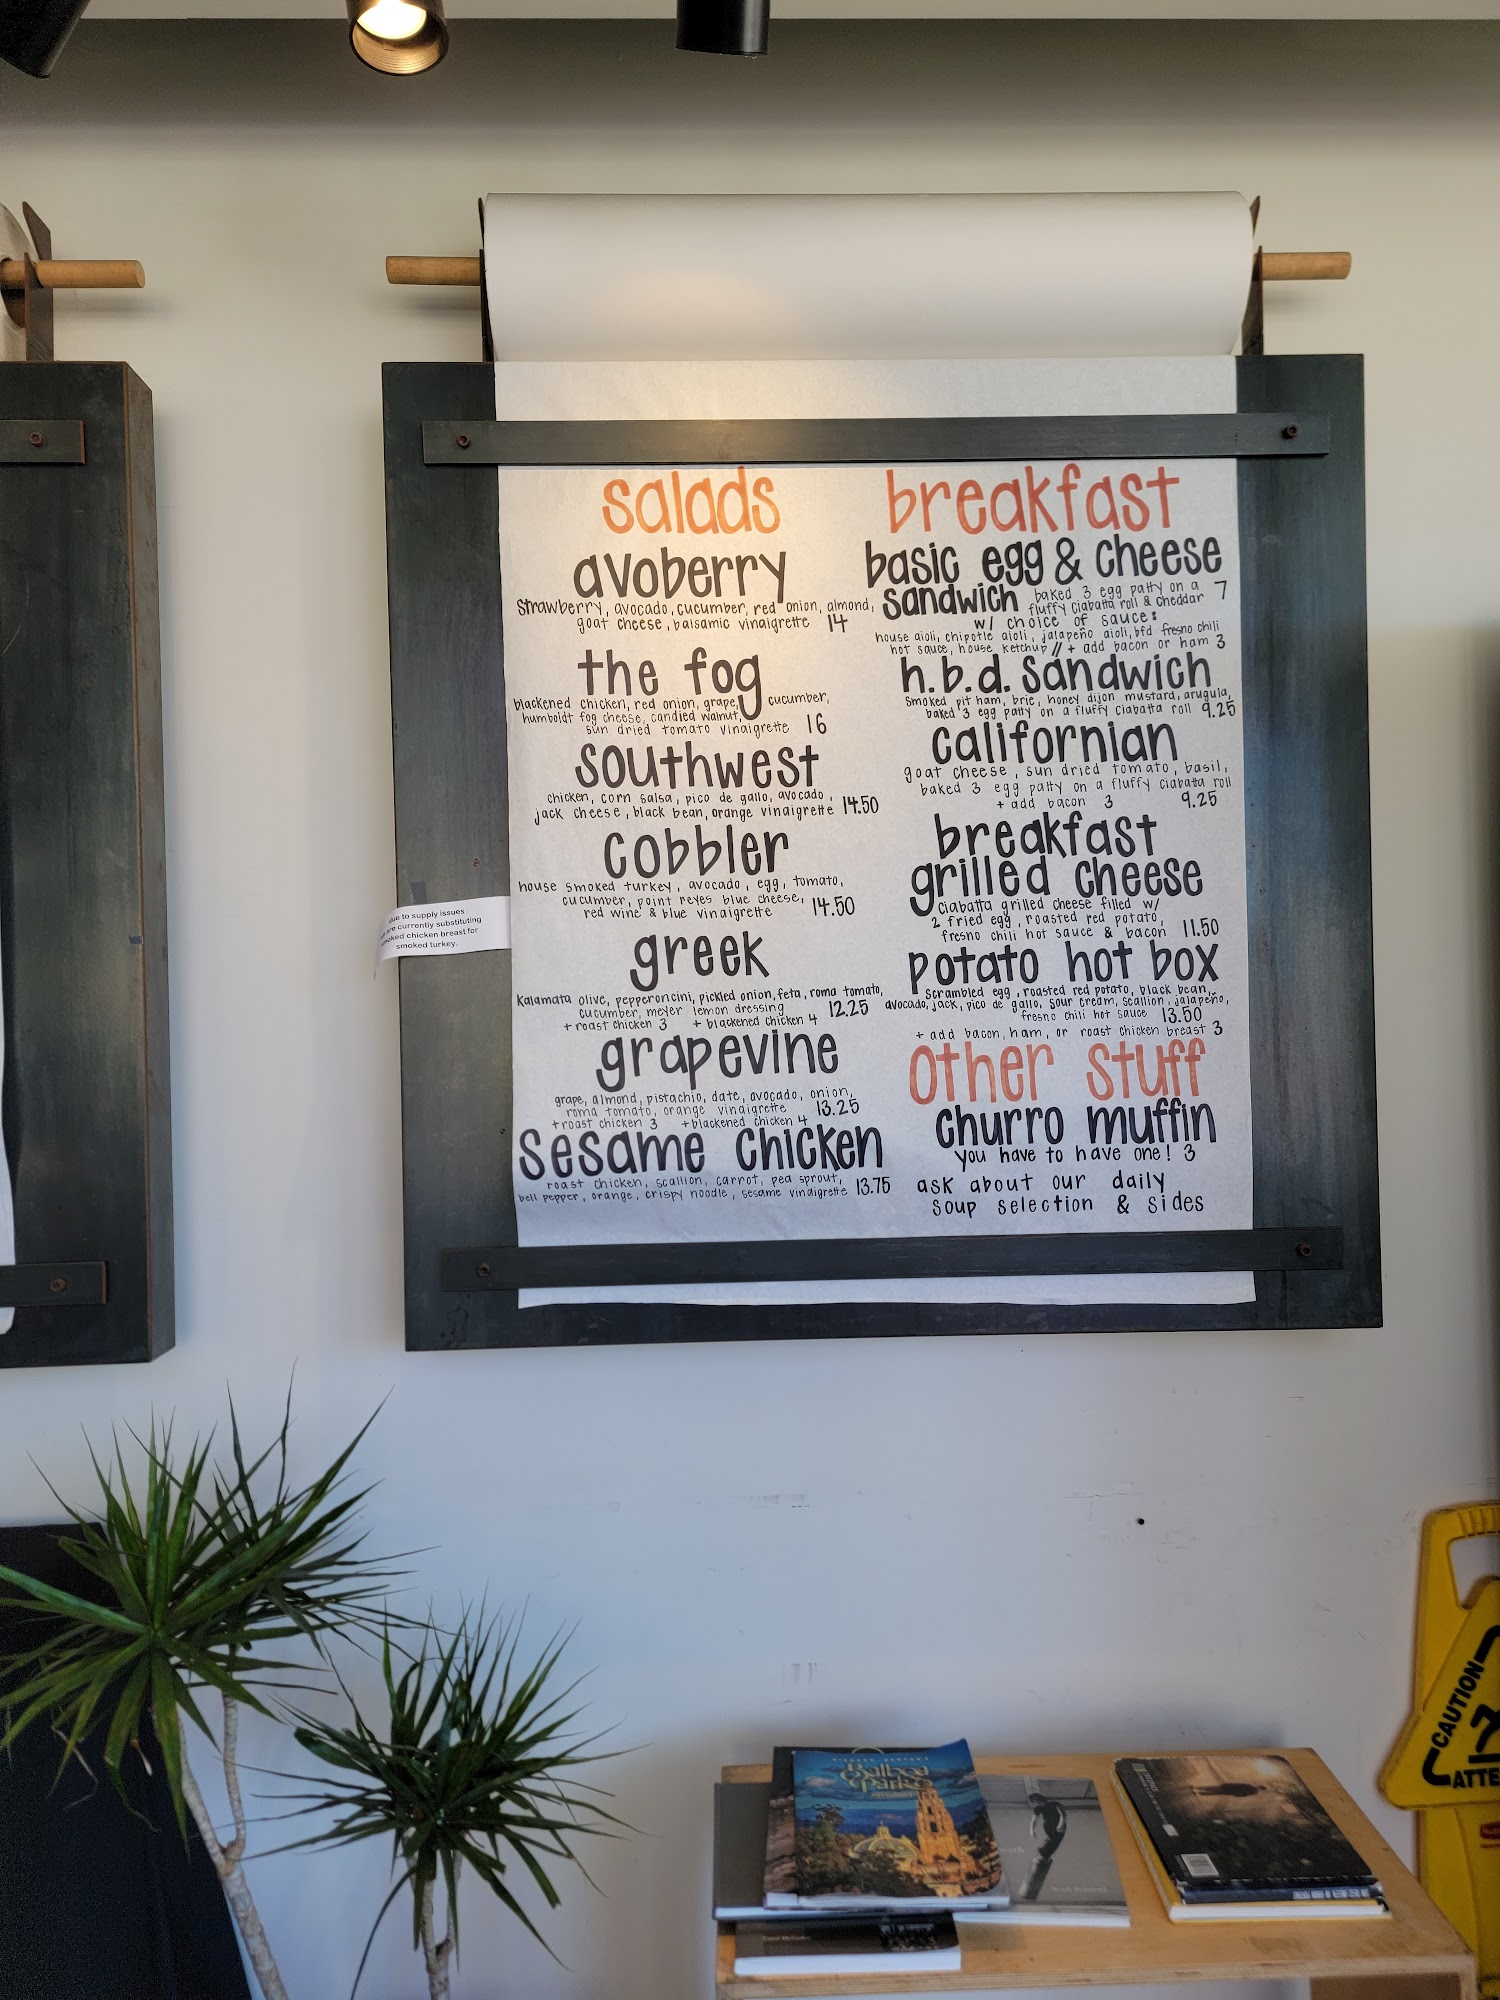 salads
avoberry
strawberry, avocado, cucumber, red onion, almond,
goat cheese, balsamic vinaigrette 14
the fog
blackened chicken, red onion, grape, cucumber,
humboldt fog cheese, candied walnut,
sun dried tomato vinaigrette 16
southwest
chicken, corn salsa, pico de gallo, avocado,
jack cheese, black bean, orange vinaigrette 14.50
cobbler
house smoked turkey, avocado, egg, tomato,
cucumber, point reyes blue cheese,
red wine & blue vinaigrette 14.50
greek
kalamata olive, pepperoncini, pickled onion, feta, roma tomato,
cucumber, meyer lemon dressing 12.25
+ roast chicken 3 + blackened chicken 4
grapevine
grape, almond, pistachio, date, avocado, onion,
roma tomato, orange vinaigrette 13.25
+ roast chicken 3 + blackened chicken 4
sesame chicken
roast chicken, scallion, carrot, pea sprout,
bell pepper, orange, crispy noodle, sesame vinaigrette 13.75
breakfast
basic egg & cheese
sandwich baked 3 egg patty on a
fluffy ciabatta roll & cheddar 7
w/ choice of sauce:
house aioli, chipotle aioli, jalapeño aioli, bfd fresno chili
hot sauce, house ketchup // + add bacon or ham 3
h.b.d. sandwich
smoked pit ham, brie, honey dijon mustard, arugula,
baked 3 egg patty on a fluffy ciabatta roll 9.25
californian
goat cheese, sun dried tomato, basil,
baked 3 egg patty on a fluffy ciabatta roll
+ add bacon 3 9.25
breakfast
grilled cheese
ciabatta grilled cheese filled w/
2 fried egg, roasted red potato,
fresno chili hot sauce & bacon 11.50
potato hot box
scrambled egg, roasted red potato, black bean,
avocado, jack, pico de gallo, sour cream, scallion, jalapeño,
fresno chili hot sauce 13.50
+ add bacon, ham, or roast chicken breast 3
other stuff
churro muffin
you have to have one! 3
ask about our daily
soup selection & sides
due to supply issues
are currently substituting
chicken breast for
smoked turkey.
Balboa
Park
CAUTION